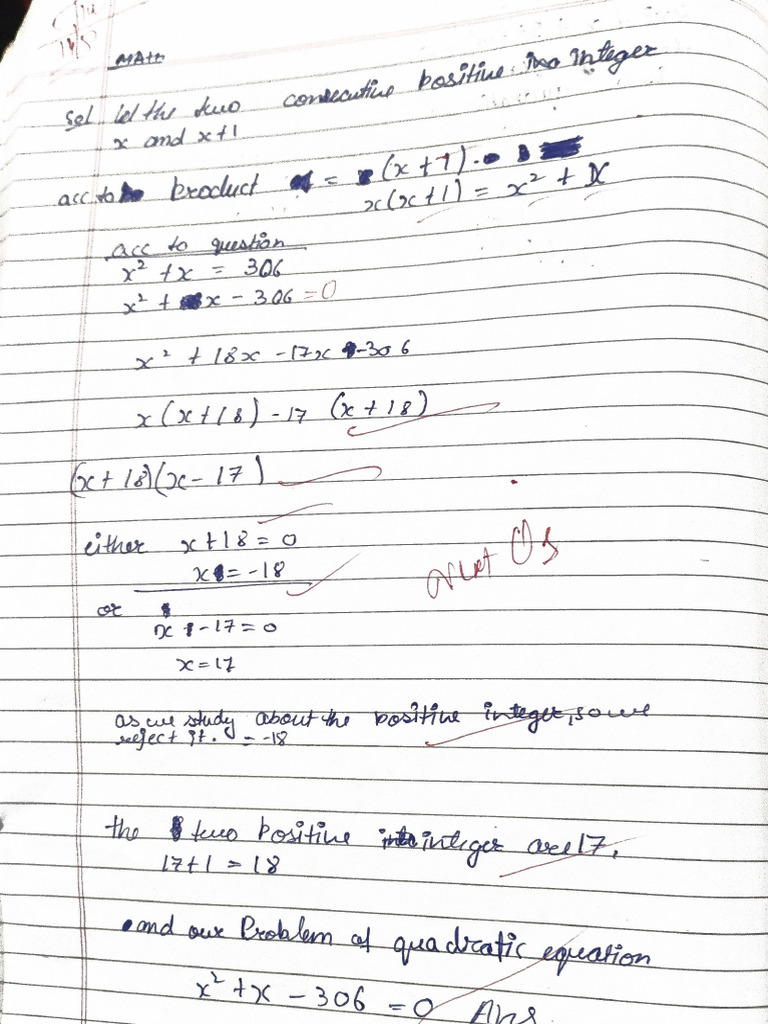 MAth
Sol let the two consecutive positive integer
x and x+1
acc to product = (x+1).
x(x+1) = x² + x
acc to question
x² + x = 306
x² + x - 306 = 0
x² + 18x - 17x - 306
x(x+18) - 17 (x+18)
(x+18)(x-17)
either x+18 = 0
x = -18
or
x - 17 = 0
x = 17
as we study about the positive integer, so we
reject it. = -18
the two positive integer are 17,
17+1 = 18
and our Problem of quadratic equation
x² + x - 306 = 0 Ans